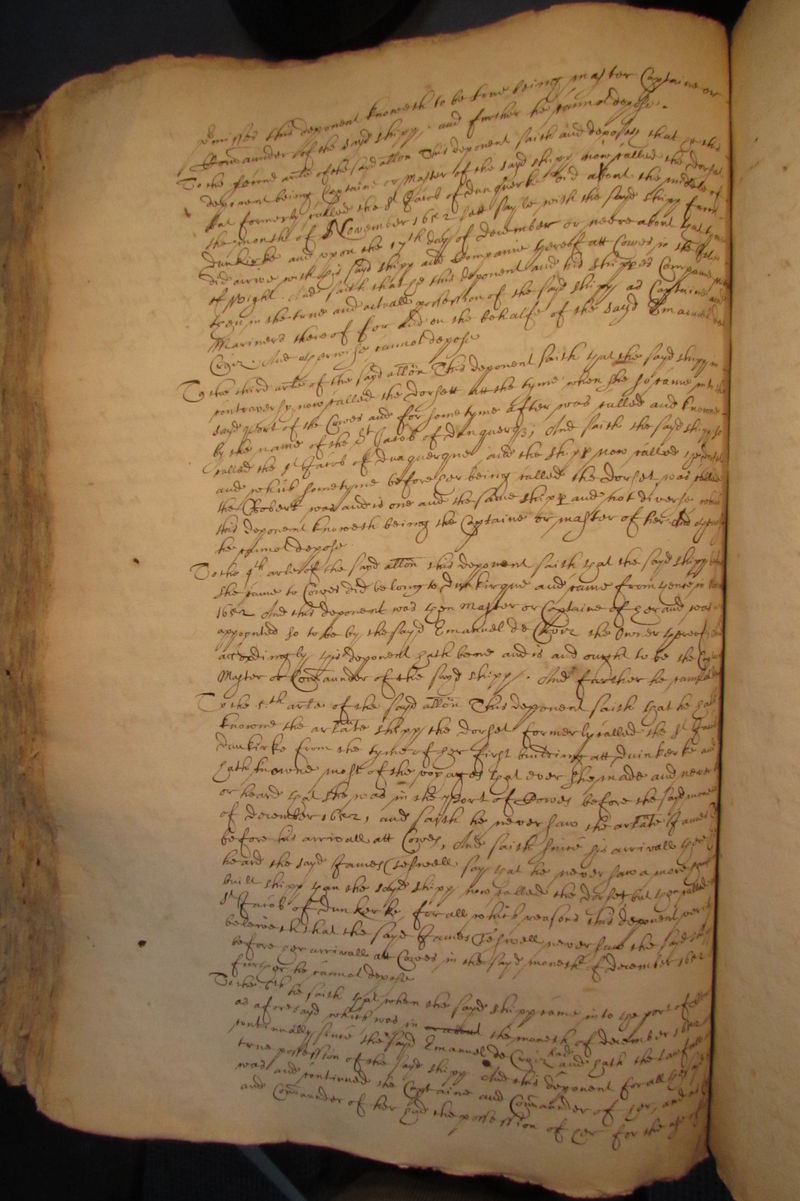 premisses this deponent knoweth to be true being master Captaine or
Commaunder of the sayd shipp. and further he cannot depose.
To the second arle of the sayd allon This deponent saith and deposeth that he this
deponent being Captaine or Master of the sayd shipp now called the Dorset
but formerly called the St Jacob of dunquerke did about the middle of
the moneth of November 1652 sett sayle with the sayd shipp from
dunkirke and upon the 17th day of december or neere about that tyme
did arrive with his sayd shipp and Companie thereof att Cowes in the Isle
of Wight. And saith that he this deponent and his shippes Companie
then in the true and actuall possession of the sayd shipp as Captaine and
Mariners thereof for and on the behalfe of the sayd Emanuel de
Croiz. And otherwise cannot depose
To the third arle of the sayd allon This deponent saith that the sayd shipp in
controversy now called the Dorsett att the tyme when she so came into the
sayd port of the Cowes and for some tyme after was called and knowne
by the name of the St Jacob of dunquerque, And saith the sayd shipp so
called the St Jacob of dunquerque and the shipp now called the Dorset
and which sometyme before her being called the Dorset was called
the Robert was and is one and the same shipp and not diverse which
this deponent knoweth being the Captaine or master of her And otherwise
he cannot depose.
To the 4th arle of the sayd allon this deponent saith that the sayd shipp before
she came to Cowes did belong to dunkirque and came from thence in
1652 And this deponent was then Master or Captaine of her and was
appointed so to be by the sayd Emanuel de Croiz the owner thereof and
accordingly this deponent hath beene and is and ought to be the Captaine
Master or Commaunder of the sayd shipp. And further he cannot depose
To the 5th arle of the sayd allon This deponent saith that he hath
knowne the arlate shipp the dorset formerly called the St Jacob
dunkirke from the tyme of her first building att duinkerke and
hath knowne most of the voyages that ever she made and never
or heard that she was in the port of Cowes before the sayd moneth
of december 1652, and saith he never saw the arlate James
before his arrivall att Cowes, And saith since his arrivall there he
heard the sayd James say that he never saw a more
built shipp than the sayd shipp now called the dorset but then called
St Jacob of dunkerke, for all which reasons this deponent verily
beleiveth that the sayd James never saw the sayd shipp
before her arrivall att Cowes in the sayd moneth of december 1652
further he cannot depose
To the 6th he saith that when the sayd shipp came into the port of Cowes
as aforesayd which was in the moneth of december 1652
continually since the sayd Emanuel de Croiz had and hath the
true possession of the sayd shipp And this deponent for all
was and continued the Captaine and Commaunder of her, and
and Commaunder of her had the possession of her for the